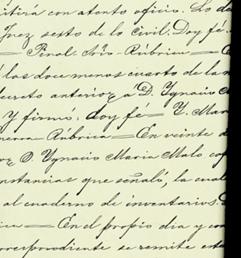 itirá con atento oficio. Lo de
Juez sesto de lo civil. Doy fé.
— Penal. Ntro. Rúbrica —
á las doce menos cuarto de la
decreto anterior á D. Ygnacio
Y firmó: doy fé — Y. Mar
Rúbrica — En veinte d
D Ygnacio Maria Malo co
nstancias que señaló, la cual
al cuaderno de inventarios.
— En el propio dia y con
correspondiente se remite este